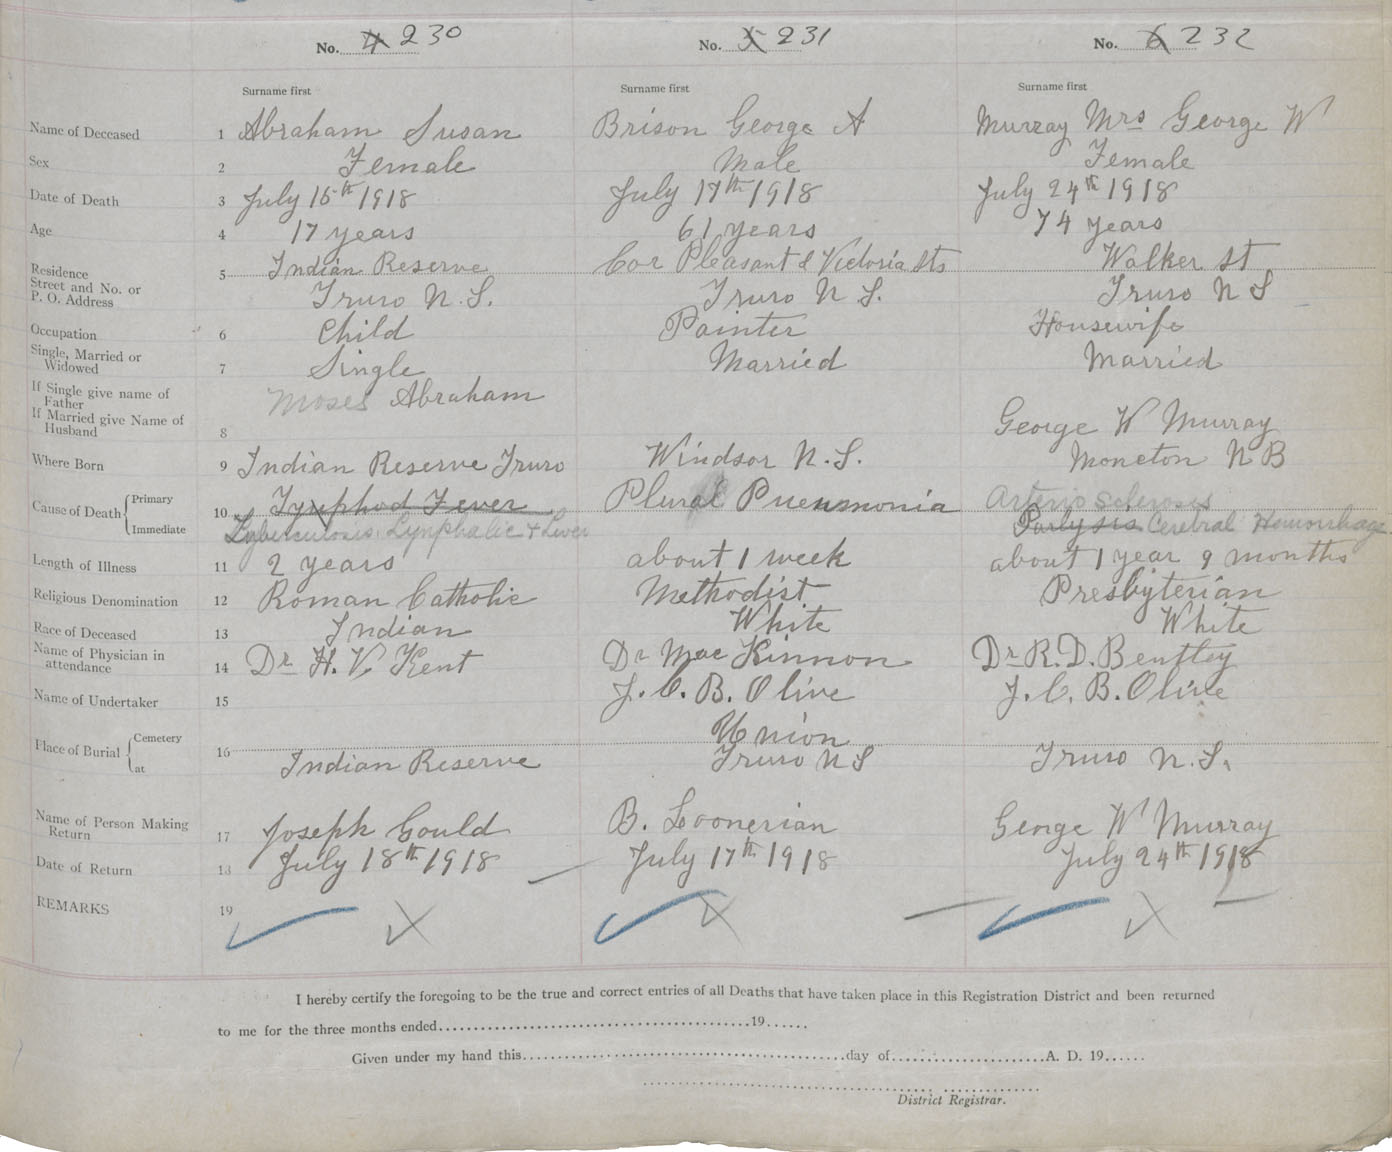 No. 4 230 No. 5 231 No. 6 232
Surname first Surname first Surname first
Name of Deceased 1 Abraham Susan Brison George A Murray Mrs George W
Sex 2 Female Male Female
Date of Death 3 July 15th 1918 July 17th 1918 July 24th 1918
Age 4 17 years 61 years 74 years
Residence Street and No. or P. O. Address 5 Indian Reserve Cor Pleasant & Victoria Sts Walker St
Truro N.S. Truro N S. Truro N S
Occupation 6 Child Painter Housewife
Single, Married or Widowed 7 Single Married Married
If Single give name of Father Moses Abraham
If Married give Name of Husband 8 George W Murray
Where Born 9 Indian Reserve Truro Windsor N.S. Moncton N B
Cause of Death Primary 10 Tynphod Fever Plural Pnenmonia Arterio Sclerosis
Immediate Tuberculosis. Lymphatic + Liver Parlysis Cerebral Hemorrhage
Length of Illness 11 2 years about 1 week about 1 year 9 months
Religious Denomination 12 Roman Catholic Methodist Presbyterian
Race of Deceased 13 Indian White White
Name of Physician in attendance 14 Dr H. V Kent Dr Mac Kinnon Dr R. D. Bentley
Name of Undertaker 15 J. C. B. Olive J. C. B. Olive
Place of Burial Cemetery 16 Union
at Indian Reserve Truro N S Truro N.S.
Name of Person Making Return 17 Joseph Gould B. Loonerian George W Murray
Date of Return 18 July 18th 1918 July 17th 1918 July 24th 1918
REMARKS 19
I hereby certify the foregoing to be the true and correct entries of all Deaths that have taken place in this Registration District and been returned
to me for the three months ended 19
Given under my hand this day of A. D. 19
District Registrar.